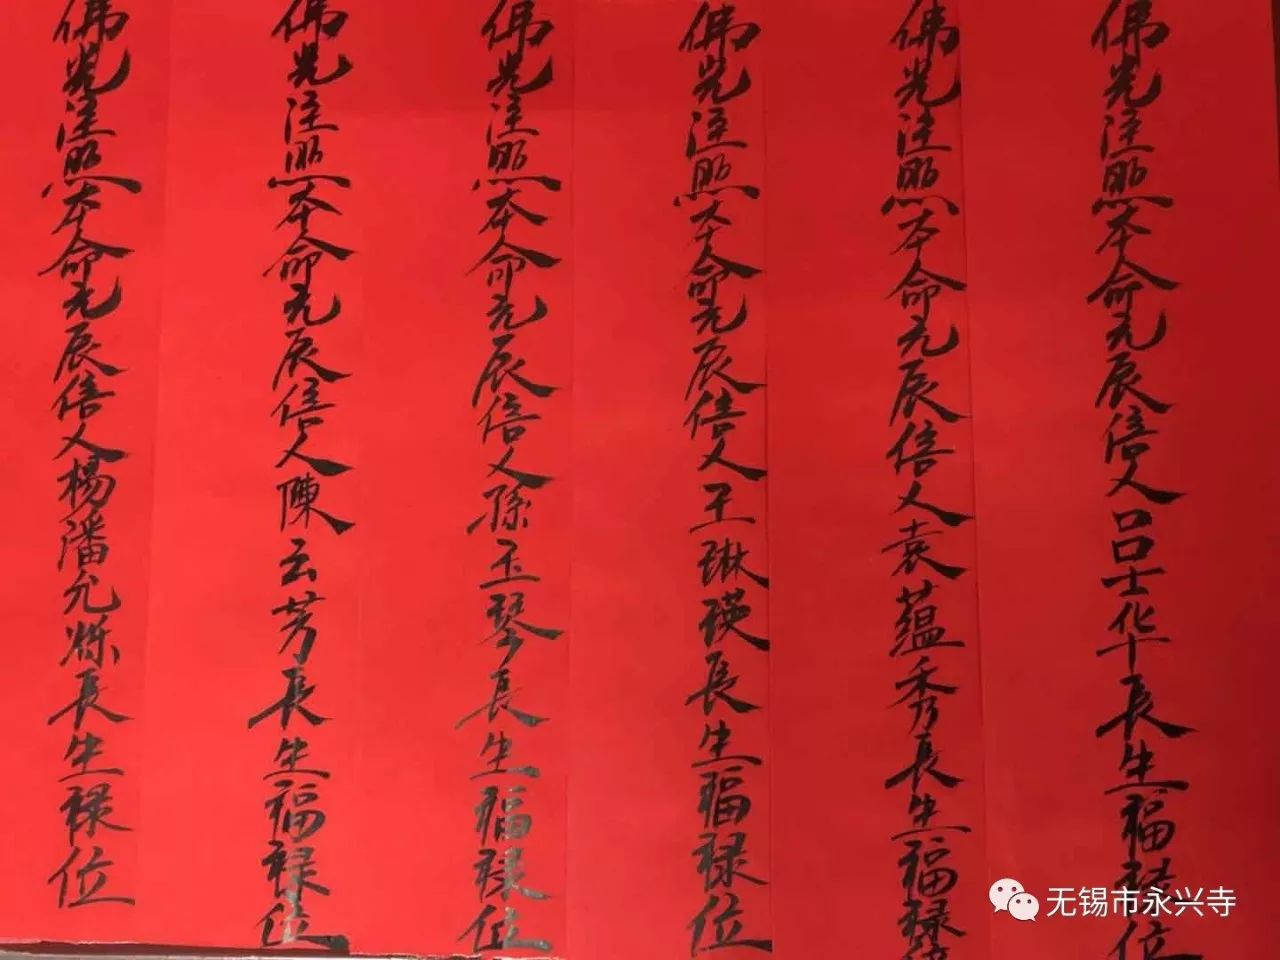 佛光注照本命元辰信人吕士华長生福禄位
佛光注照本命元辰信人袁蕴秀長生福禄位
佛光注照本命元辰信人王琳瑛長生福禄位
佛光注照本命元辰信人孫玉琴長生福禄位
佛光注照本命元辰信人陳云芳長生福禄位
佛光注照本命元辰信人楊潘允烁長生禄位
无锡市永兴寺